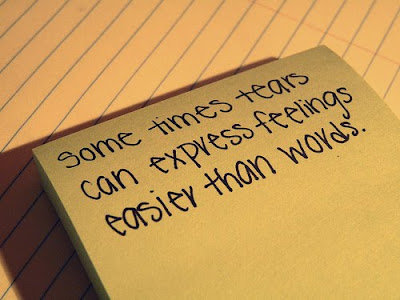 some times tears
can express feelings
easier than words.